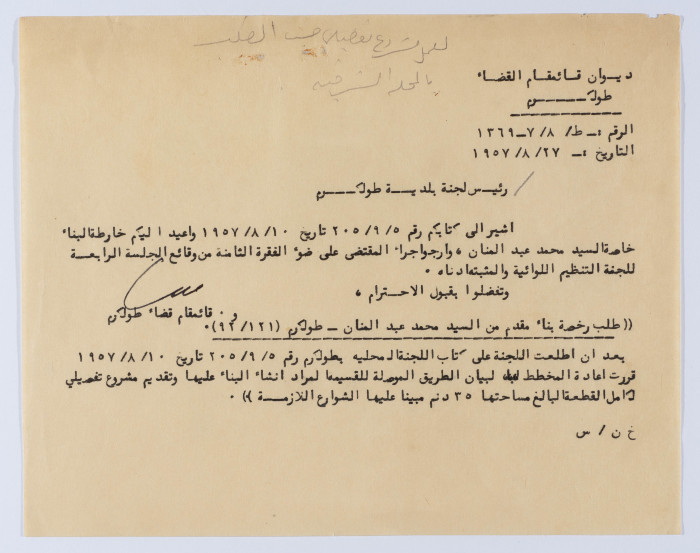 لعمل مشروع تفصيلي حسب الطلب
بالمحلة الشرقية
ديـوان قـائمقـام القضـاء
طولكـــــرم
الرقم :ــ ط/ ٧/٨ــ١٣٦٩
التاريخ :ــ ١٩٥٧/٨/٢٧
/ رئيس لجنة بلديـة طولكـــرم
اشير الى كتابكم رقم ٢٠٥/٩/٥ تاريخ ١٩٥٧/٨/١٠ واعيد اليكم خارطة البناء
خاصة السيد محمد عبد المنان ، وارجو اجراء المقتضى على ضوء الفقرة الثامنة من وقائع الجلسة الرابعـة
للجنة التنظيم اللوائية والمثبته ادناه .
وتفضلوا بقبول الاحـترام ،
و . قائمقام قضاء طولكرم
(( طلب رخصة بناء مقدم من السيد محمد عبد المنان ــ طولكرم (٩٢/١٢١) .
بعد ان اطلعت اللجنة على كتاب اللجنة المحليه بطولكرم رقم ٢٠٥/٩/٥ تاريخ ١٩٥٧/٨/١٠
قررت اعادة المخطط لبيان الطريق الموصلة للقسيمة المراد انشاء البناء عليها وتقديم مشروع تفصيلي
لكامل القطعة البالغ مساحتها ٣٥ دنم مبينا عليها الشوارع اللازمـــة )) .
خ ن / س